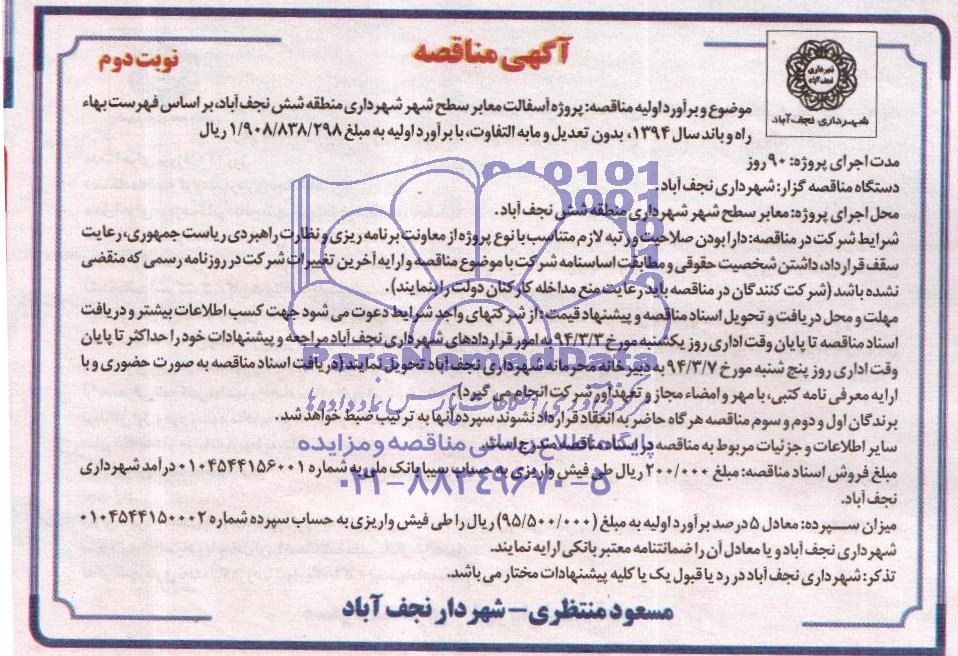 آگهی مناقصه
نوبت دوم
شهرداری نجف آباد
شهرداری نجف آباد
موضوع و برآورد اولیه مناقصه: پروژه آسفالت معابر سطح شهر شهرداری منطقه شش نجف آباد، بر اساس فهرست بهاء
راه و باند سال ۱۳۹۴، بدون تعدیل و مابه التفاوت، با برآورد اولیه به مبلغ ۱/۹۰۸/۸۳۸/۲۹۸ ریال
مدت اجرای پروژه: ۹۰ روز
دستگاه مناقصه گزار: شهرداری نجف آباد.
محل اجرای پروژه: معابر سطح شهر شهرداری منطقه شش نجف آباد.
شرایط شرکت در مناقصه: دارا بودن صلاحیت و رتبه لازم متناسب با نوع پروژه از معاونت برنامه ریزی و نظارت راهبردی ریاست جمهوری، رعایت
سقف قرارداد، داشتن شخصیت حقوقی و مطابقت اساسنامه شرکت با موضوع مناقصه و ارایه آخرین تغییرات شرکت در روزنامه رسمی که منقضی
نشده باشد (شرکت کنندگان در مناقصه باید رعایت منع مداخله کارکنان دولت را بنمایند).
مهلت و محل دریافت و تحویل اسناد مناقصه و پیشنهاد قیمت: از شرکتهای واجد شرایط دعوت می شود جهت کسب اطلاعات بیشتر و دریافت
اسناد مناقصه تا پایان وقت اداری روز یکشنبه مورخ ۹۴/۳/۳ به امور قراردادهای شهرداری نجف آباد مراجعه و پیشنهادات خود را حداکثر تا پایان
وقت اداری روز پنج شنبه مورخ ۹۴/۳/۷ به دبیرخانه محرمانه شهرداری نجف آباد تحویل نمایند (دریافت اسناد مناقصه به صورت حضوری و با
ارایه معرفی نامه کتبی، با مهر و امضاء مجاز و تعهدآور شرکت انجام می گیرد).
برندگان اول و دوم و سوم مناقصه هر گاه حاضر به انعقاد قرارداد نشوند سپرده آنها به ترتیب ضبط خواهد شد.
سایر اطلاعات و جزئیات مربوط به مناقصه در اسناد مناقصه مندرج است.
مبلغ فروش اسناد مناقصه: مبلغ ۲۰۰/۰۰۰ ریال طی فیش واریزی به حساب سیبا بانک ملی به شماره ۰۱۰۴۵۴۴۱۵۶۰۰۱ درآمد شهرداری
نجف آباد.
میزان سپرده: معادل ۵ درصد برآورد اولیه به مبلغ (۹۵/۵۰۰/۰۰۰) ریال را طی فیش واریزی به حساب سپرده شماره ۰۱۰۴۵۴۴۱۵۰۰۰۲
شهرداری نجف آباد و یا معادل آن را ضمانتنامه معتبر بانکی ارایه نمایند.
تذکر: شهرداری نجف آباد در رد یا قبول یک یا کلیه پیشنهادات مختار می باشد.
مسعود منتظری - شهردار نجف آباد
ParsNamadData
پایگاه اطلاع رسانی مناقصه و مزایده
۰۲۱-۸۸۳۴۹۶۷۰-۵